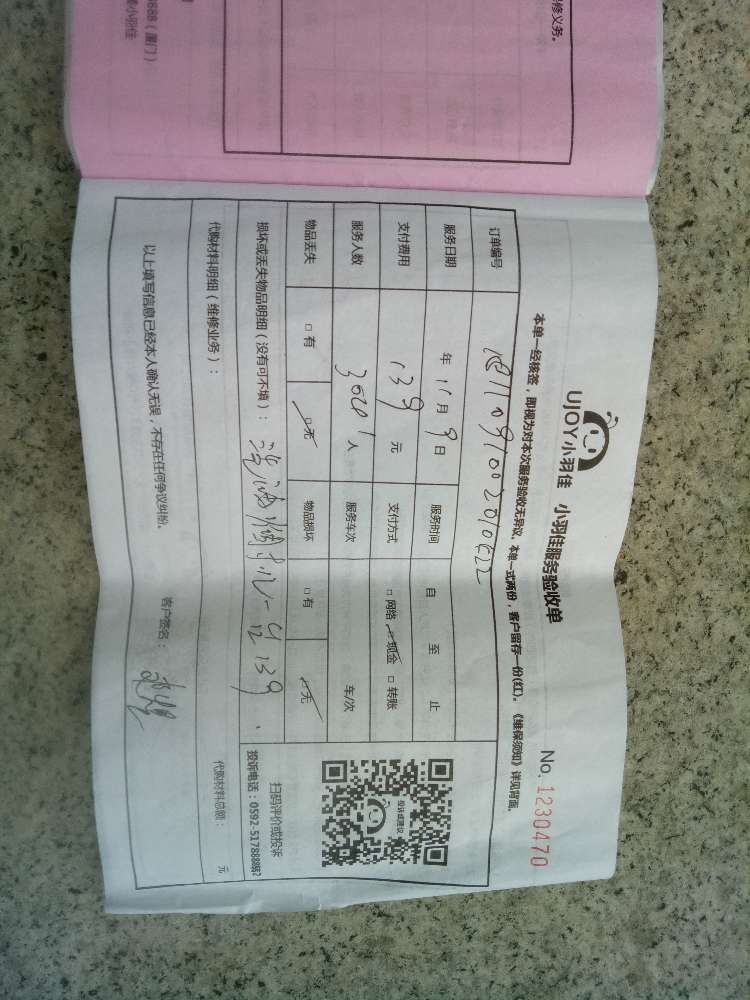 修义务。
0888（厦门）
小羽佳
UJOY小羽佳 小羽佳服务验收单
No. 1230470
本单一经核签，即视为对本次服务验收无异议，本单一式两份，客户留存一份(红)。《维保须知》详见背面。
订单编号
服务日期 年 11月 9日 服务时间 自 至 止
支付费用 139 元 支付方式 □ 网络 现金 □ 转账
服务人数 人 服务车次 车/次
物品丢失 □ 有 □ 无 物品损坏 □ 有 无
损坏或丢失物品明细（没有可不填）： 139
代购材料明细（维修业务）： 代购材料总额： 元
投诉或建议
扫码评价或投诉
投诉电话：0592-5178888转2
以上填写信息已经本人确认无误，不存在任何争议纠纷。 客户签名：